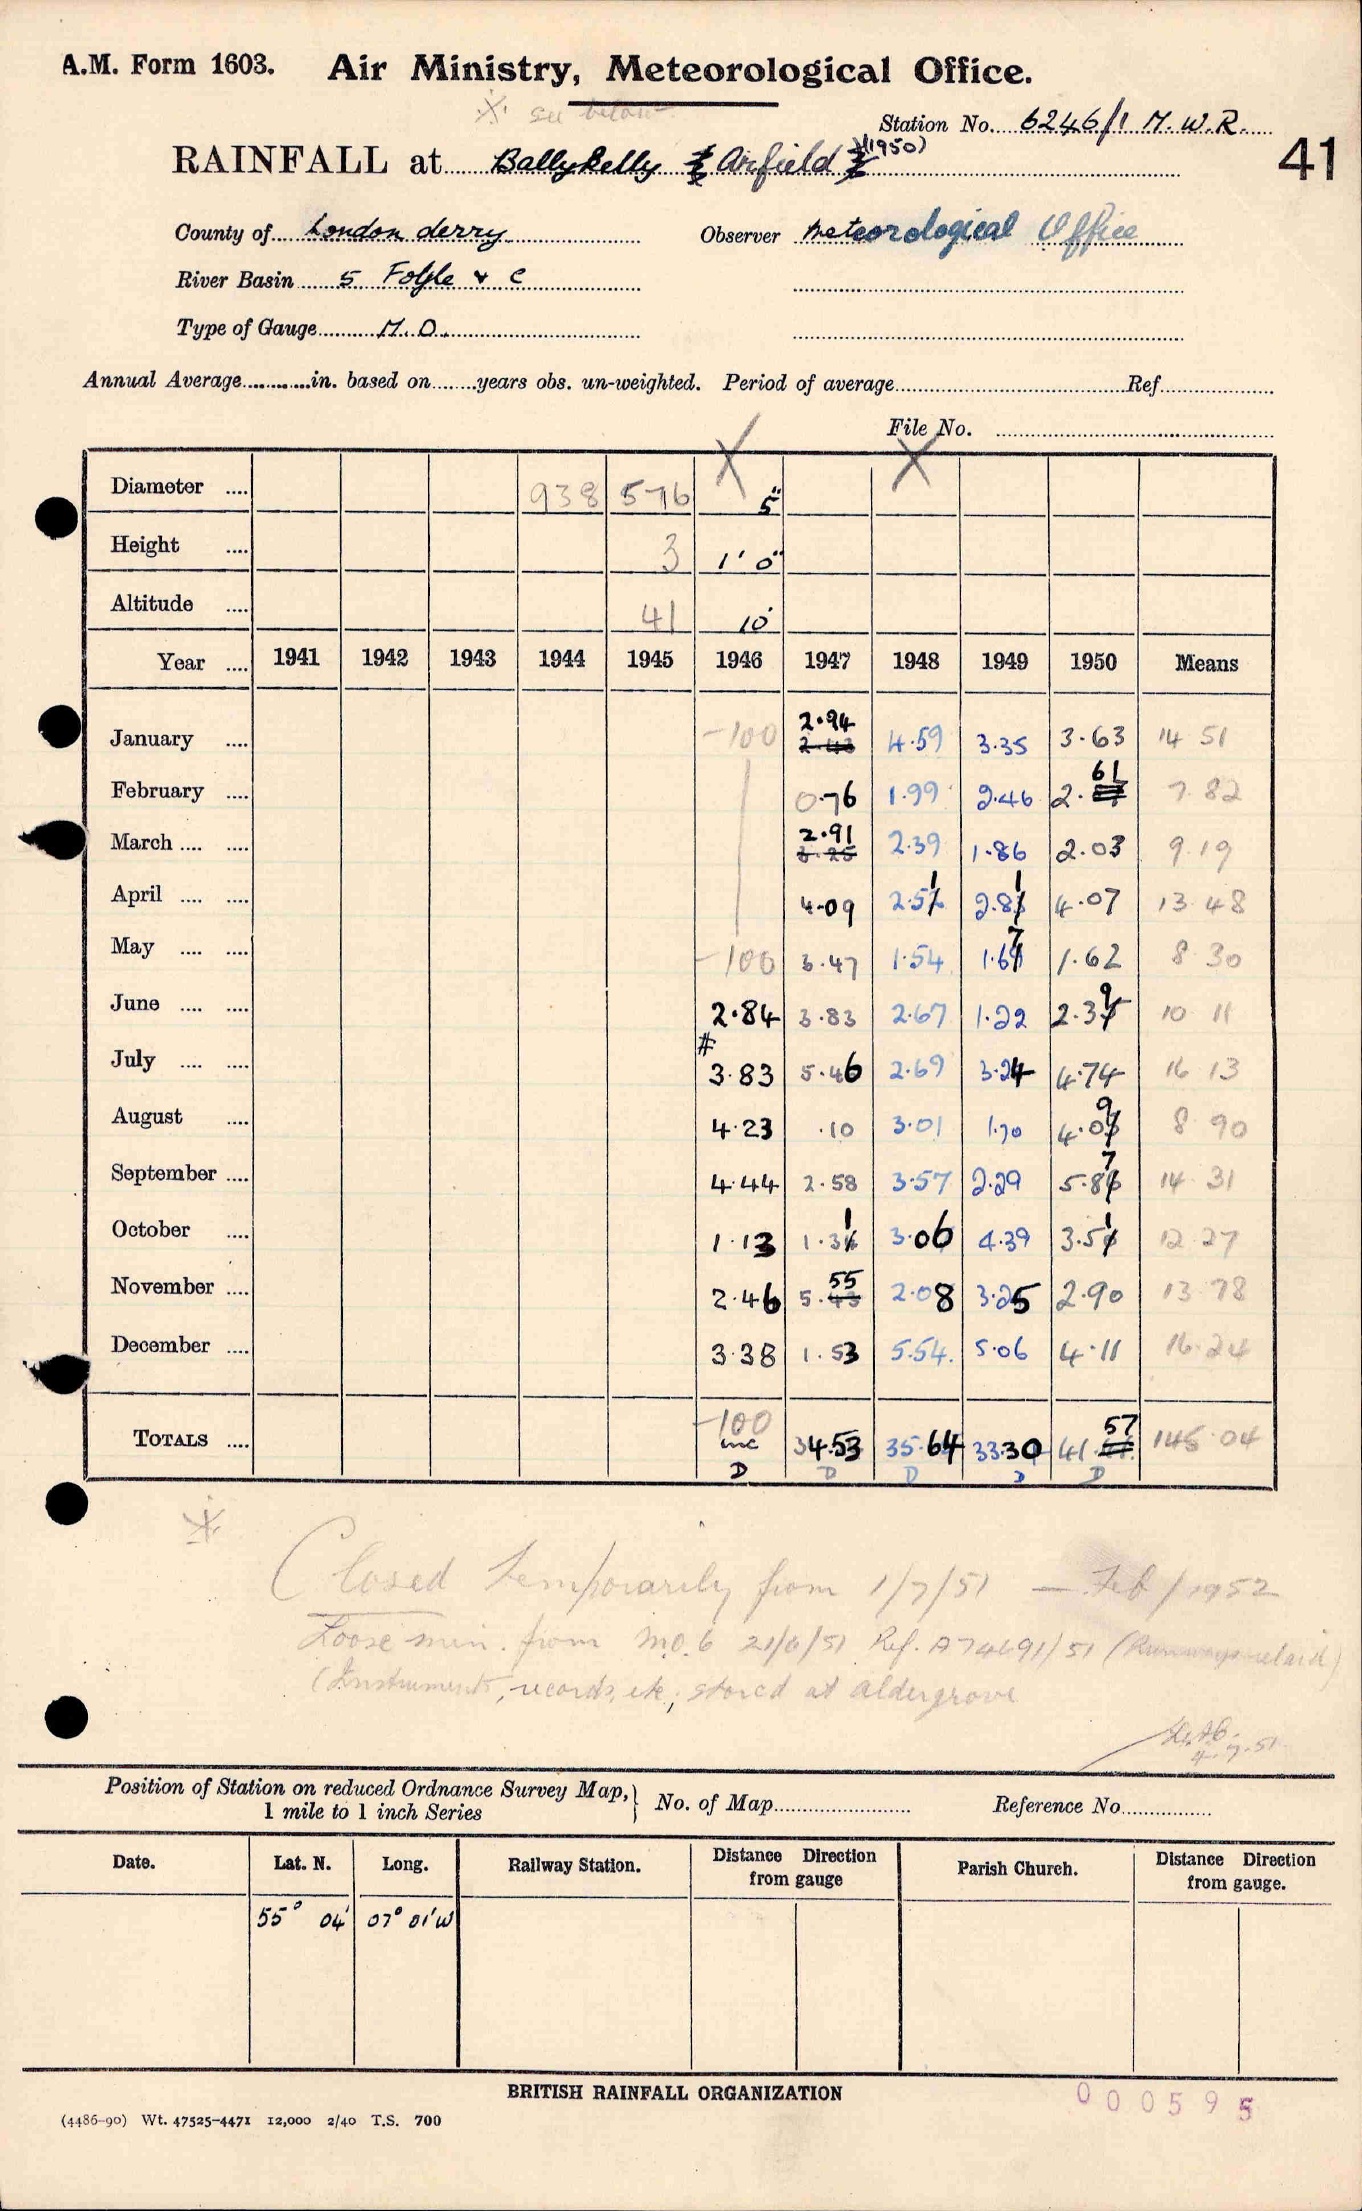 A.M. Form 1603. Air Ministry, Meteorological Office.
see below
Station No. 6246/1 M.W.R.
41
RAINFALL at Ballykelly Airfield (1950)
County of Londonderry Observer Meteorological Office
River Basin 5 Foyle & C
Type of Gauge M.O.
Annual Average in. based on years obs. un-weighted. Period of average Ref.
File No.
Diameter .... 938 576 5"
Height .... 3 1' 0"
Altitude .... 41 10'
Year .... 1941 1942 1943 1944 1945 1946 1947 1948 1949 1950 Means
January .... -100 2.94 4.59 3.35 3.63 14 51
February .... 0.76 1.99 2.46 2.61 7.82
March .... .... 2.91 2.39 1.86 2.03 9.19
April .... .... 4.09 2.51 2.81 4.07 13 48
May .... .... -100 3.47 1.54 1.67 1.62 8 30
June .... .... 2.84 3.83 2.67 1.22 2.39 10 11
July .... .... # 3.83 5.46 2.69 3.24 4.74 16 13
August .... 4.23 .10 3.01 1.70 4.09 8 90
September .... 4.44 2.58 3.57 2.29 5.87 14 31
October .... 1.13 1.31 3.06 4.39 3.51 12 27
November .... 2.46 5.55 2.08 3.25 2.90 13 78
December .... 3.38 1.53 5.54 5.06 4.11 16.24
TOTALS .... -100 inc D 34.53 D 35.64 D 33.30 D 41.57 D 145.04
Closed temporarily from 1/7/51 — Feb/1952
Loose min. from M.O.6 21/6/51 Ref. A74691/51 (Runways relaid)
(Instruments, records, etc; stored at Aldergrove
4.7.51
Position of Station on reduced Ordnance Survey Map, 1 mile to 1 inch Series } No. of Map Reference No.
Date. Lat. N. Long. Railway Station. Distance Direction from gauge Parish Church. Distance Direction from gauge.
55° 04' 07° 01'W
BRITISH RAINFALL ORGANIZATION
000595
(4486-90) Wt. 47525-4471 12,000 2/40 T.S. 700